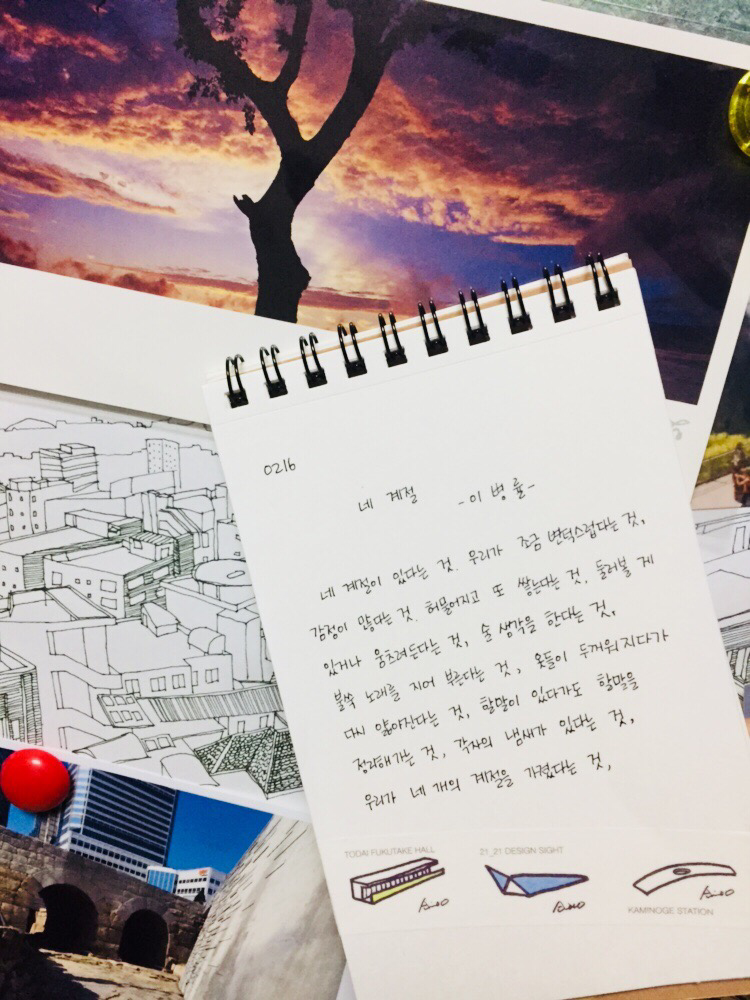 0216
네 계절 -이병률-
네 계절이 있다는 것. 우리가 조금 변덕스럽다는 것,
감정이 많다는 것. 허물어지고 또 쌓는다는 것, 둘러볼 게
있거나 움츠려든다는 것, 술 생각을 한다는 것,
불쑥 노래를 지어 부른다는 것, 옷들이 두꺼워지다가
다시 얇아진다는 것, 할말이 있다가도 할말을
정리해가는 것, 각자의 냄새가 있다는 것,
우리가 네 개의 계절을 가졌다는 것,
TODAI FUKUTAKE HALL
21_21 DESIGN SIGHT
KAMINOGE STATION